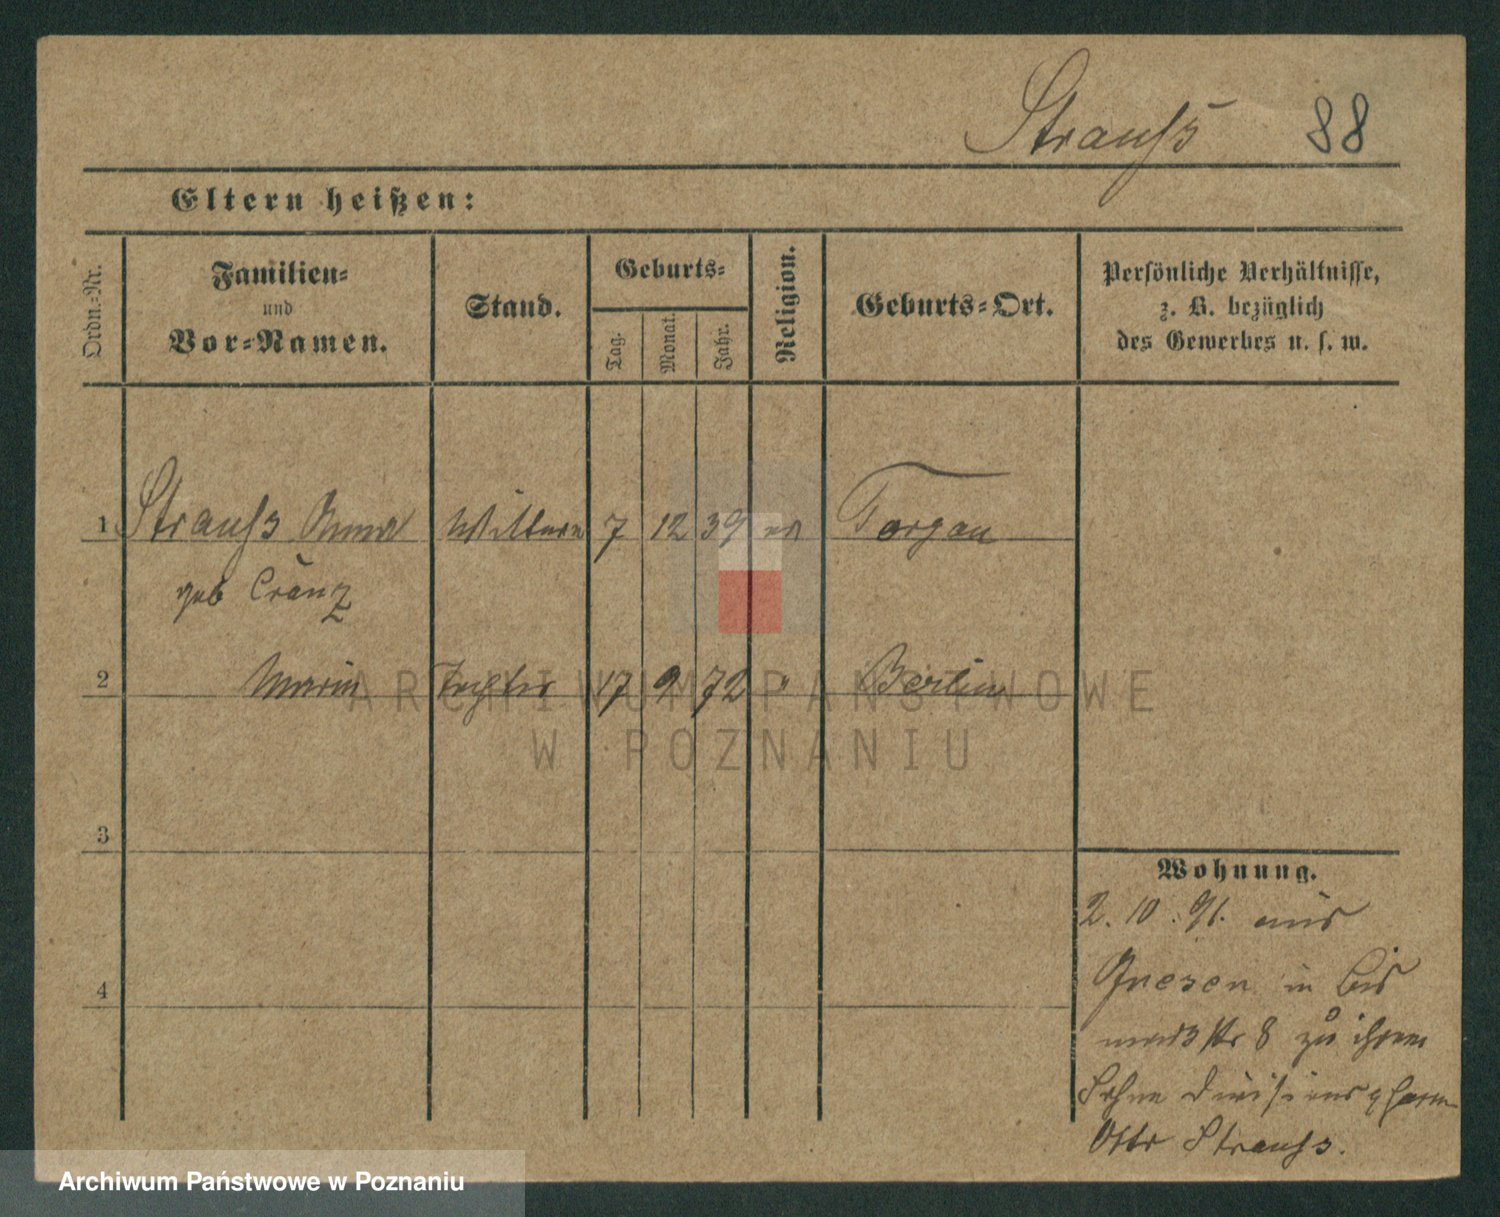 Strauß 88
Eltern heißen:
Ordn.-Nr.
Familien-
und
Vor-Namen.
Stand.
Geburts-
Tag.
Monat.
Jahr.
Religion.
Geburts-Ort.
Persönliche Verhältnisse,
z. B. bezüglich
des Gewerbes u. s. w.
1 Strauß Anna Wittwe 7 12 39 ev Torgau
geb Cranz
2 Marie Tochter 17 9 72 " Berlin
3
4
Wohnung.
2. 10. 91. aus
Gnesen in Bis
marckstr 8 zu ihrem
Sohne Divisionspfarrer
Otto Strauß.
ARCHIWUM PAŃSTWOWE
W POZNANIU
Archiwum Państwowe w Poznaniu